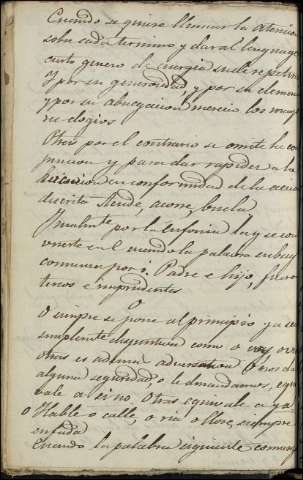 Cuando se quiere llamar la atencion
sobre cada termino y dar al lenguage
cierto genero de energia suele repetirse
Y por su generosidad, y por su clemen
y por su abnegacion merecio los mayo
res elogios
Otras por el contrario se omite la con
juncion y para dar rapidez a la
en conformidad de la accion
descrita Acude, corre, buela
Finalmente por la Eufonia la y se con
vierte en é cuando la palabra subsig
comienza por i. Padre e hijo, fur
tivos e imprudentes
O
O siempre se pone al principio ya es
simplemente disyuntiva como o voy o v
otras es adversativa O nos da
alguna seguridad, o le demandamos, equi
vale a si no. Otras equivale a ya
O hable o calle, o ria o llore, siempre
enfada
Cuando la palabra siguiente comienza